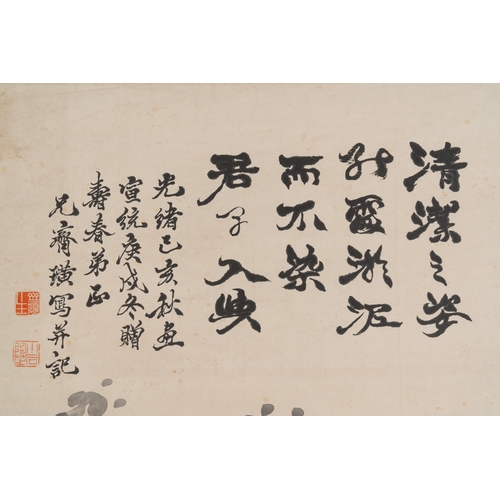 清潔之姿
於霝淤泥
而不染
君子入典
光緒己亥秋畫
宣統庚戌冬贈
壽春弟正
兄齊璜寫并記